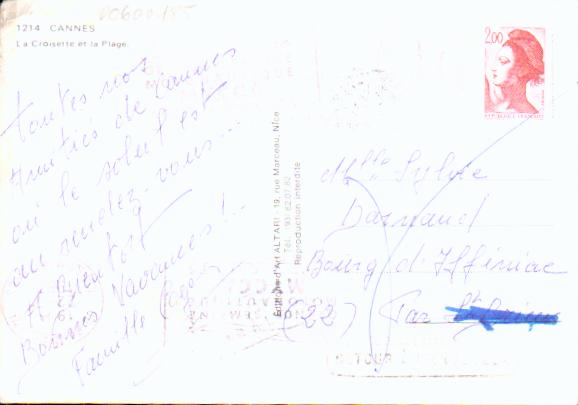 00600185
1214 CANNES
La Croisette et la Plage.
2,00
toutes nos
Amitiés de Cannes
où le soleil est
au rendez-vous...
A Bientôt
Bonnes Vacances!..
Famille
Editions d'Art ALTARI - 19, rue Marceau, Nice
Tél. (93) 62.07.82
Reproduction interdite
Melle Sylvie
Darnaud
Bourg d'Iffiniac
(22) Par
RETOUR